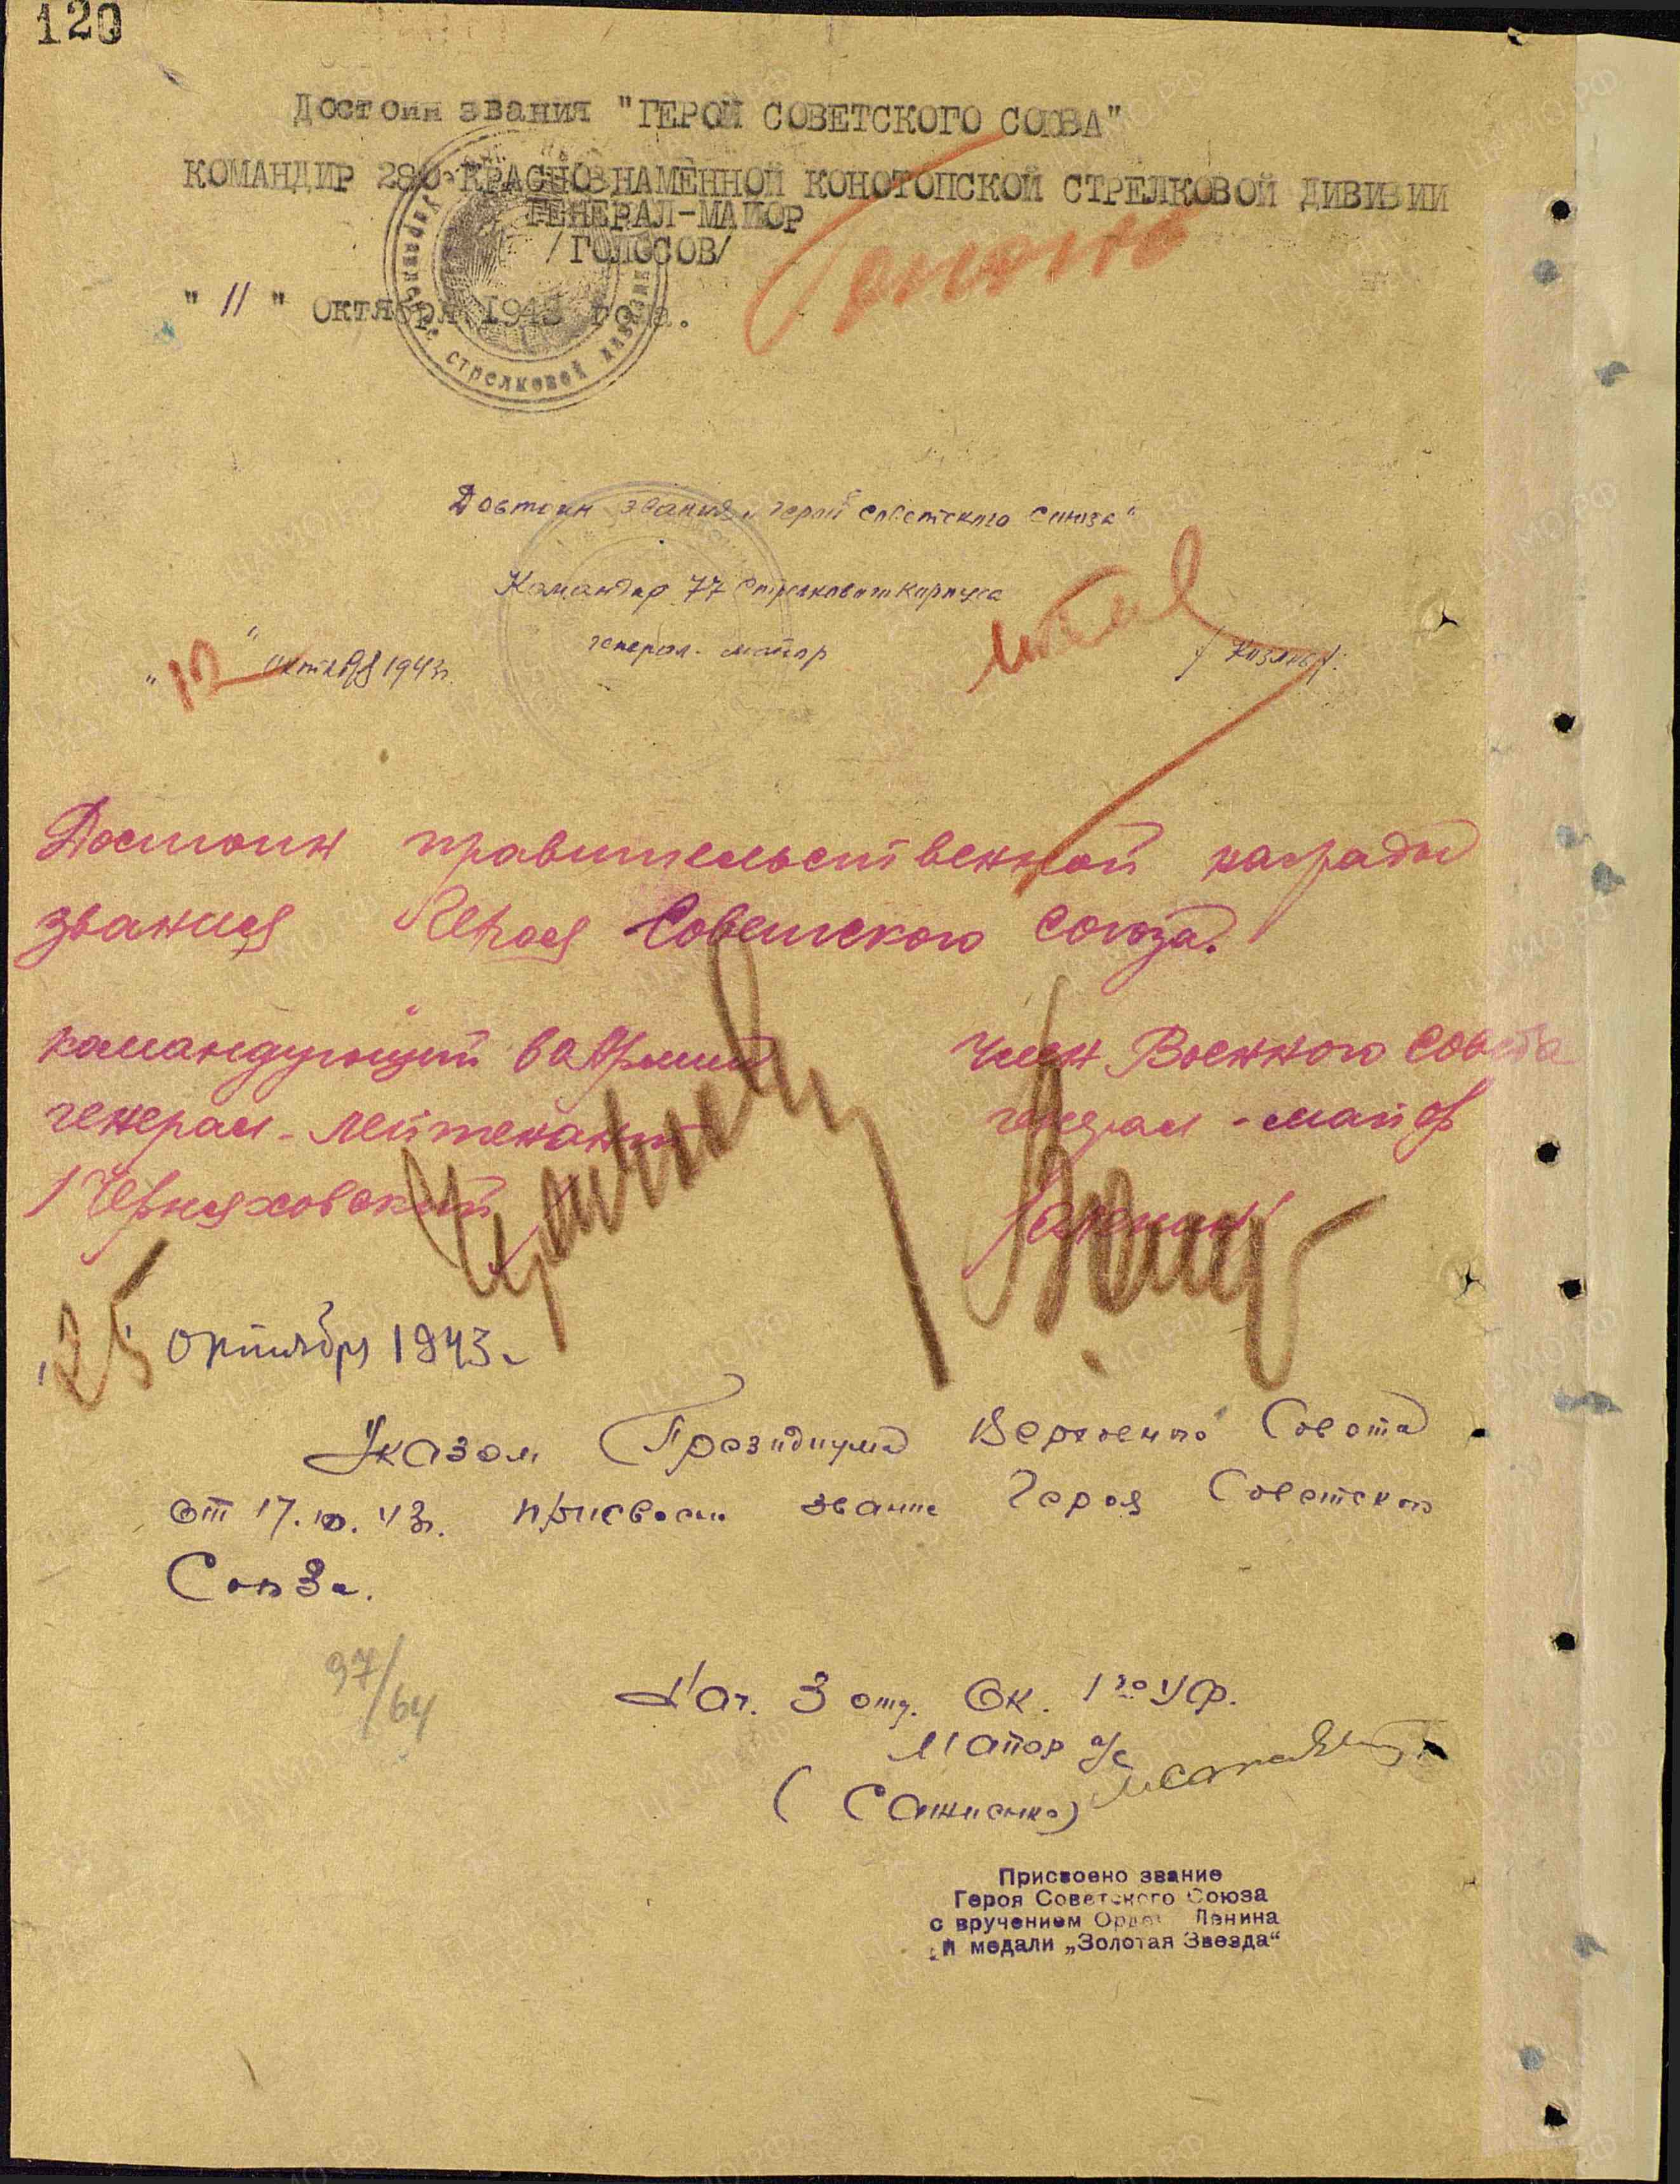 120
Достоин звания "ГЕРОЙ СОВЕТСКОГО СОЮЗА"
КОМАНДИР 280 КРАСНОЗНАМЕННОЙ КОНОТОПСКОЙ СТРЕЛКОВОЙ ДИВИЗИИ
ГЕНЕРАЛ-МАЙОР
/ГОЛОСОВ/
" 11 " Октября 1943 года.
стрелковой дивизии
Достоин звания „Герой Советского Союза"
Командир 77 стрелкового корпуса
генерал-майор /Козлов/.
" 12 " октября 1943г.
Достоин правительственной награды
звания Героя Советского Союза.
командующий 60 Армией
генерал-лейтенант
/Черняховский
член Военного Совета
генерал-майор
25 октября 1943г
Указом Президиума Верховного Совета
от 17.10.43г. присвоен звание Героя Советского
Союза.
97/64
Нач. 3 отд. ОК. 1го УФ.
Майор а/с
Присвоено звание
Героя Советского Союза
с вручением Орден Ленина
и медали „Золотая Звезда"